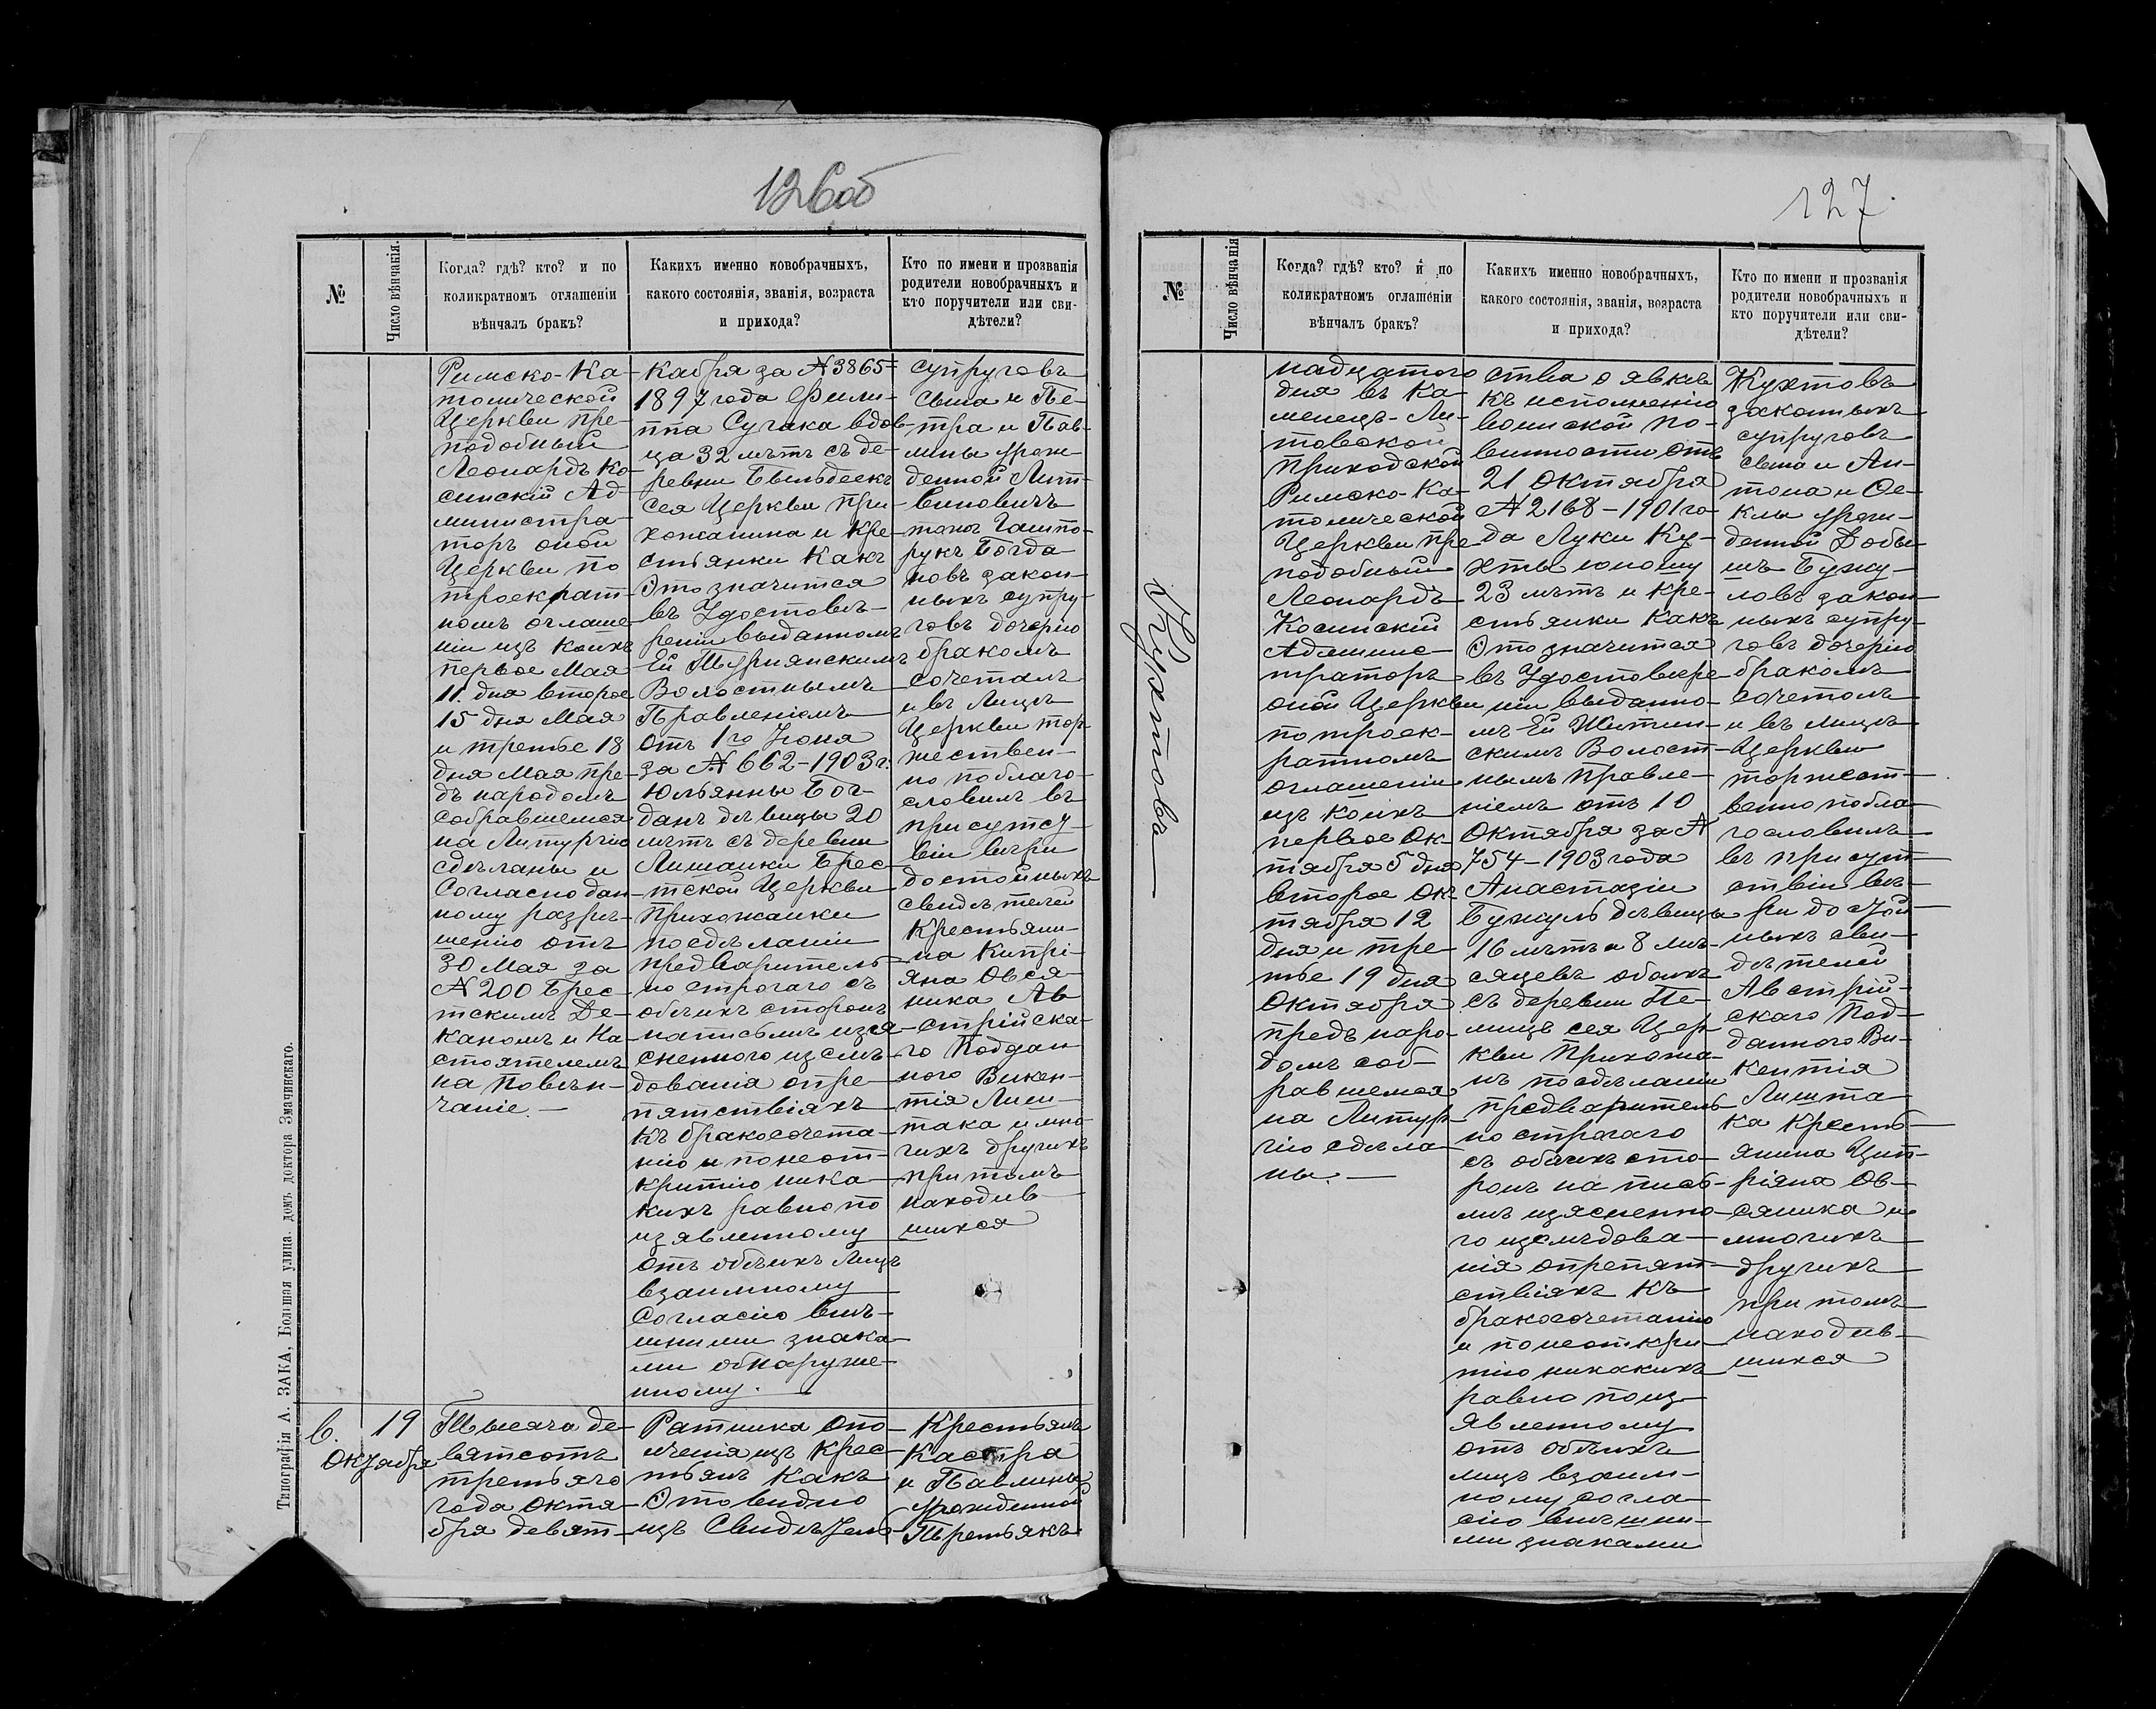 126об
№
Число вѣнчанія.
Когда? гдѣ? кто? и по
коликратномъ оглашеніи
вѣнчалъ бракъ?
Какихъ именно новобрачныхъ,
какого состоянія, званія, возраста
и прихода?
Кто по имени и прозванія
родители новобрачныхъ и
кто поручители или сви-
дѣтели?
Римско-Ка-
толической
Церкви пре-
подобный
Леонардъ Ко-
синскій Ад-
министра-
торъ оной
Церкви по
троекрат-
номъ оглаше-
ніи изъ коихъ
первое Мая
11. дня второе
15 дня Мая
и третье 18
дня Мая пре-
дъ народомъ
собравшемся
на Литургію
сдѣланы и
Согласно дан-
ному разрѣ-
шенію отъ
30 Мая за
№ 200 Брес-
тскимъ Де-
каномъ и На-
стоятелемъ
на Повѣн-
чаніе. —
кабря за № 3865=
1897 года Фили-
ппа Сугака вдов-
ца 32 лѣтъ съ де-
ревни
сея Церкви при-
хожанина и кре-
стьянки Какъ
Это значится
въ Удостовѣ-
реніи выданномъ
Ей Турнянскимъ
Волостнымъ
Правленіемъ
отъ 1го Іюня
за № 662-1903 г.
Юльянны Бог-
данъ дѣвицы 20
лѣтъ съ деревни
Лишанки Брес-
тской Церкви
Прихожанки
по сдѣланіи
предваритель-
но строгаго съ
обѣихъ сторонъ
написьмѣ изя-
сненного изслѣ-
дованія опре-
пятствіяхъ
къ бракосочета-
нію и понеот-
критію ника-
кихъ равно по
изявленному
отъ обѣихъ Лицъ
взаимному
Согласію внѣ-
шними знака-
ми обнаруже-
нному. —
супруговъ
сына и Пе-
тра и Пав-
лины урож-
денной Лит-
виновичъ
тожъ Гашто-
рукъ Богда
новъ закон-
ныхъ супру-
говъ дочерію
бракомъ
сочеталъ
и въ Лицѣ
Церкви тор-
жествен-
но поблаго-
словилъ въ
присутст-
віи вѣри
достойныхъ
свидѣтелей
Крестьяни-
на Кипрі-
яна Овся-
ника Ав-
стрійска-
го Поддан-
ного Викен-
тія Лиш-
така и мно-
гихъ другихъ
при томъ
находив-
шихся
6.
19
Октября
Тысяча де-
вятсотъ
третьяго
года Октя-
бря девят-
Ратника опо-
лченія изъ Крес-
тьянъ Какъ
Это видно
изъ Свидѣтель-
Крестьянъ
Кастра
и Павлины
урожденной
Третьякъ
Типографія А. ЗАКА, Большая улица. домъ доктора Змачинскаго.
127.
№
Число вѣнчанія
Когда? гдѣ? кто? и по
коликратномъ оглашеніи
вѣнчалъ бракъ?
Какихъ именно новобрачныхъ,
какого состоянія, званія, возраста
и прихода?
Кто по имени и прозванія
родители новобрачныхъ и
кто поручители или сви-
дѣтели?
Кухтовъ
надцатого
дня въ Ка-
менецъ-Ли-
товской
Приходской
Римско-Ка-
толической
Церкви пре
подобный
Леонардъ
Косинскій
Админис-
траторъ
оной Церкви
по троек-
ратномъ
оглашеніи
изъ коихъ
первое Ок-
тября 5 дня
второе Ок-
тября 12
дня и тре-
тье 19 дня
Октября
предъ наро-
домъ соб-
равшемся
на Литур-
гію сдѣла-
ны. —
ства о явкѣ
къ исполненію
воинской по-
винности отъ
21 Октября
№ 2168-1901 го-
да Луки Ку-
хты юношу
23 лѣтъ и кре-
стьянки Какъ
Это значится
въ Удостовѣре
ніи выданно-
мъ Ей Житин-
скимъ Волост-
нымъ Правле-
ніемъ отъ 10
Октября за №
754-1903 года
Анастазіи
Бужулъ дѣвицы
16 лѣтъ и 8 мѣ-
сяцевъ обоихъ
съ деревни Пе-
лищъ сея Цер-
кви Прихожа-
нъ по сдѣланіи
предваритель-
но строгаго
съ обѣихъ сто-
ронъ на пись-
мѣ изясненно-
го изслѣдова-
нія опрепят-
ствіяхъ къ
бракосочетанію
и понеоткри-
тію никакихъ
равно поиз-
явленному
отъ обѣихъ
лицъ взаим-
ному согла-
сію внѣшни-
ми знаками
Кухтовъ
законныхъ
супруговъ
сына и Ан-
тона и Фе-
клы урож-
денной Добы-
шъ Бужу-
ловъ закон-
ныхъ супру-
говъ дочерію
бракомъ
сочеталъ
и въ лицѣ
Церкви
торжест-
венно побла-
гословилъ
въ присут-
ствіи вѣ-
ри достой-
ныхъ сви-
дѣтелей
Австрій-
скаго Под-
данного Ви-
кентія
Лишта-
ка Кресть-
янина Цип-
ріяна Ов-
сяника и
многихъ
другихъ
при томъ
находив-
шихся